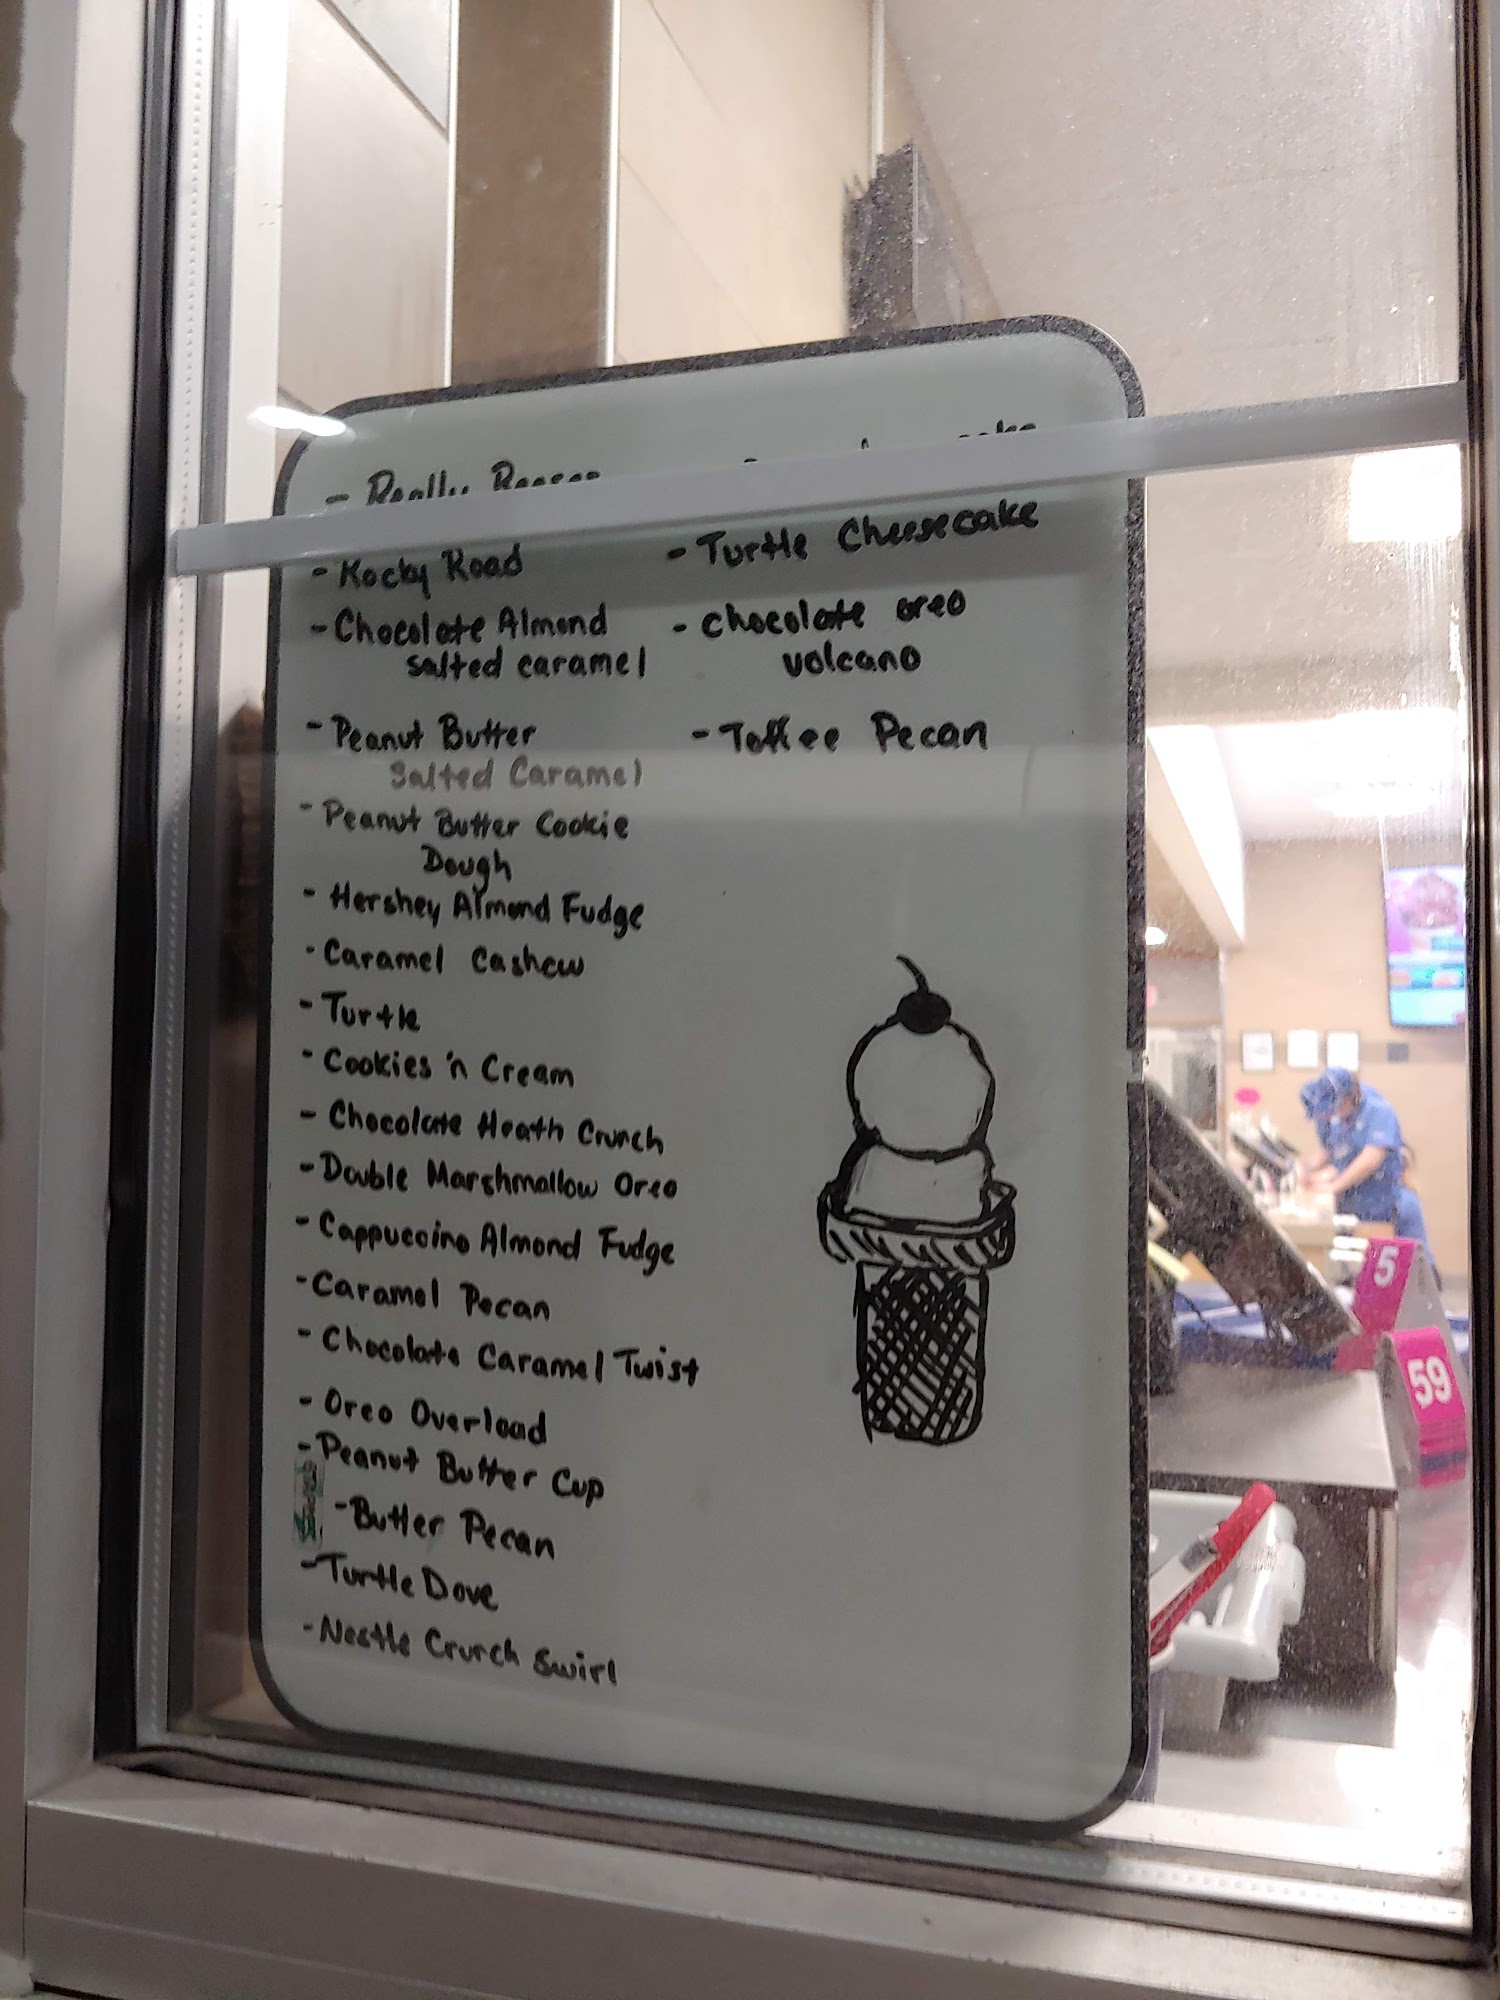 - Really Reeses
- Rocky Road
- Chocolate Almond
salted caramel
- Peanut Butter
Salted Caramel
- Peanut Butter Cookie
Dough
- Hershey Almond Fudge
- Caramel Cashew
- Turtle
- Cookies 'n Cream
- Chocolate Heath Crunch
- Double Marshmallow Oreo
- Cappuccino Almond Fudge
- Caramel Pecan
- Chocolate Caramel Twist
- Oreo Overload
- Peanut Butter Cup
- Butter Pecan
- Turtle Dove
- Nestle Crunch Swirl
- Turtle Cheesecake
- chocolate oreo
volcano
- Toffee Pecan
5
59